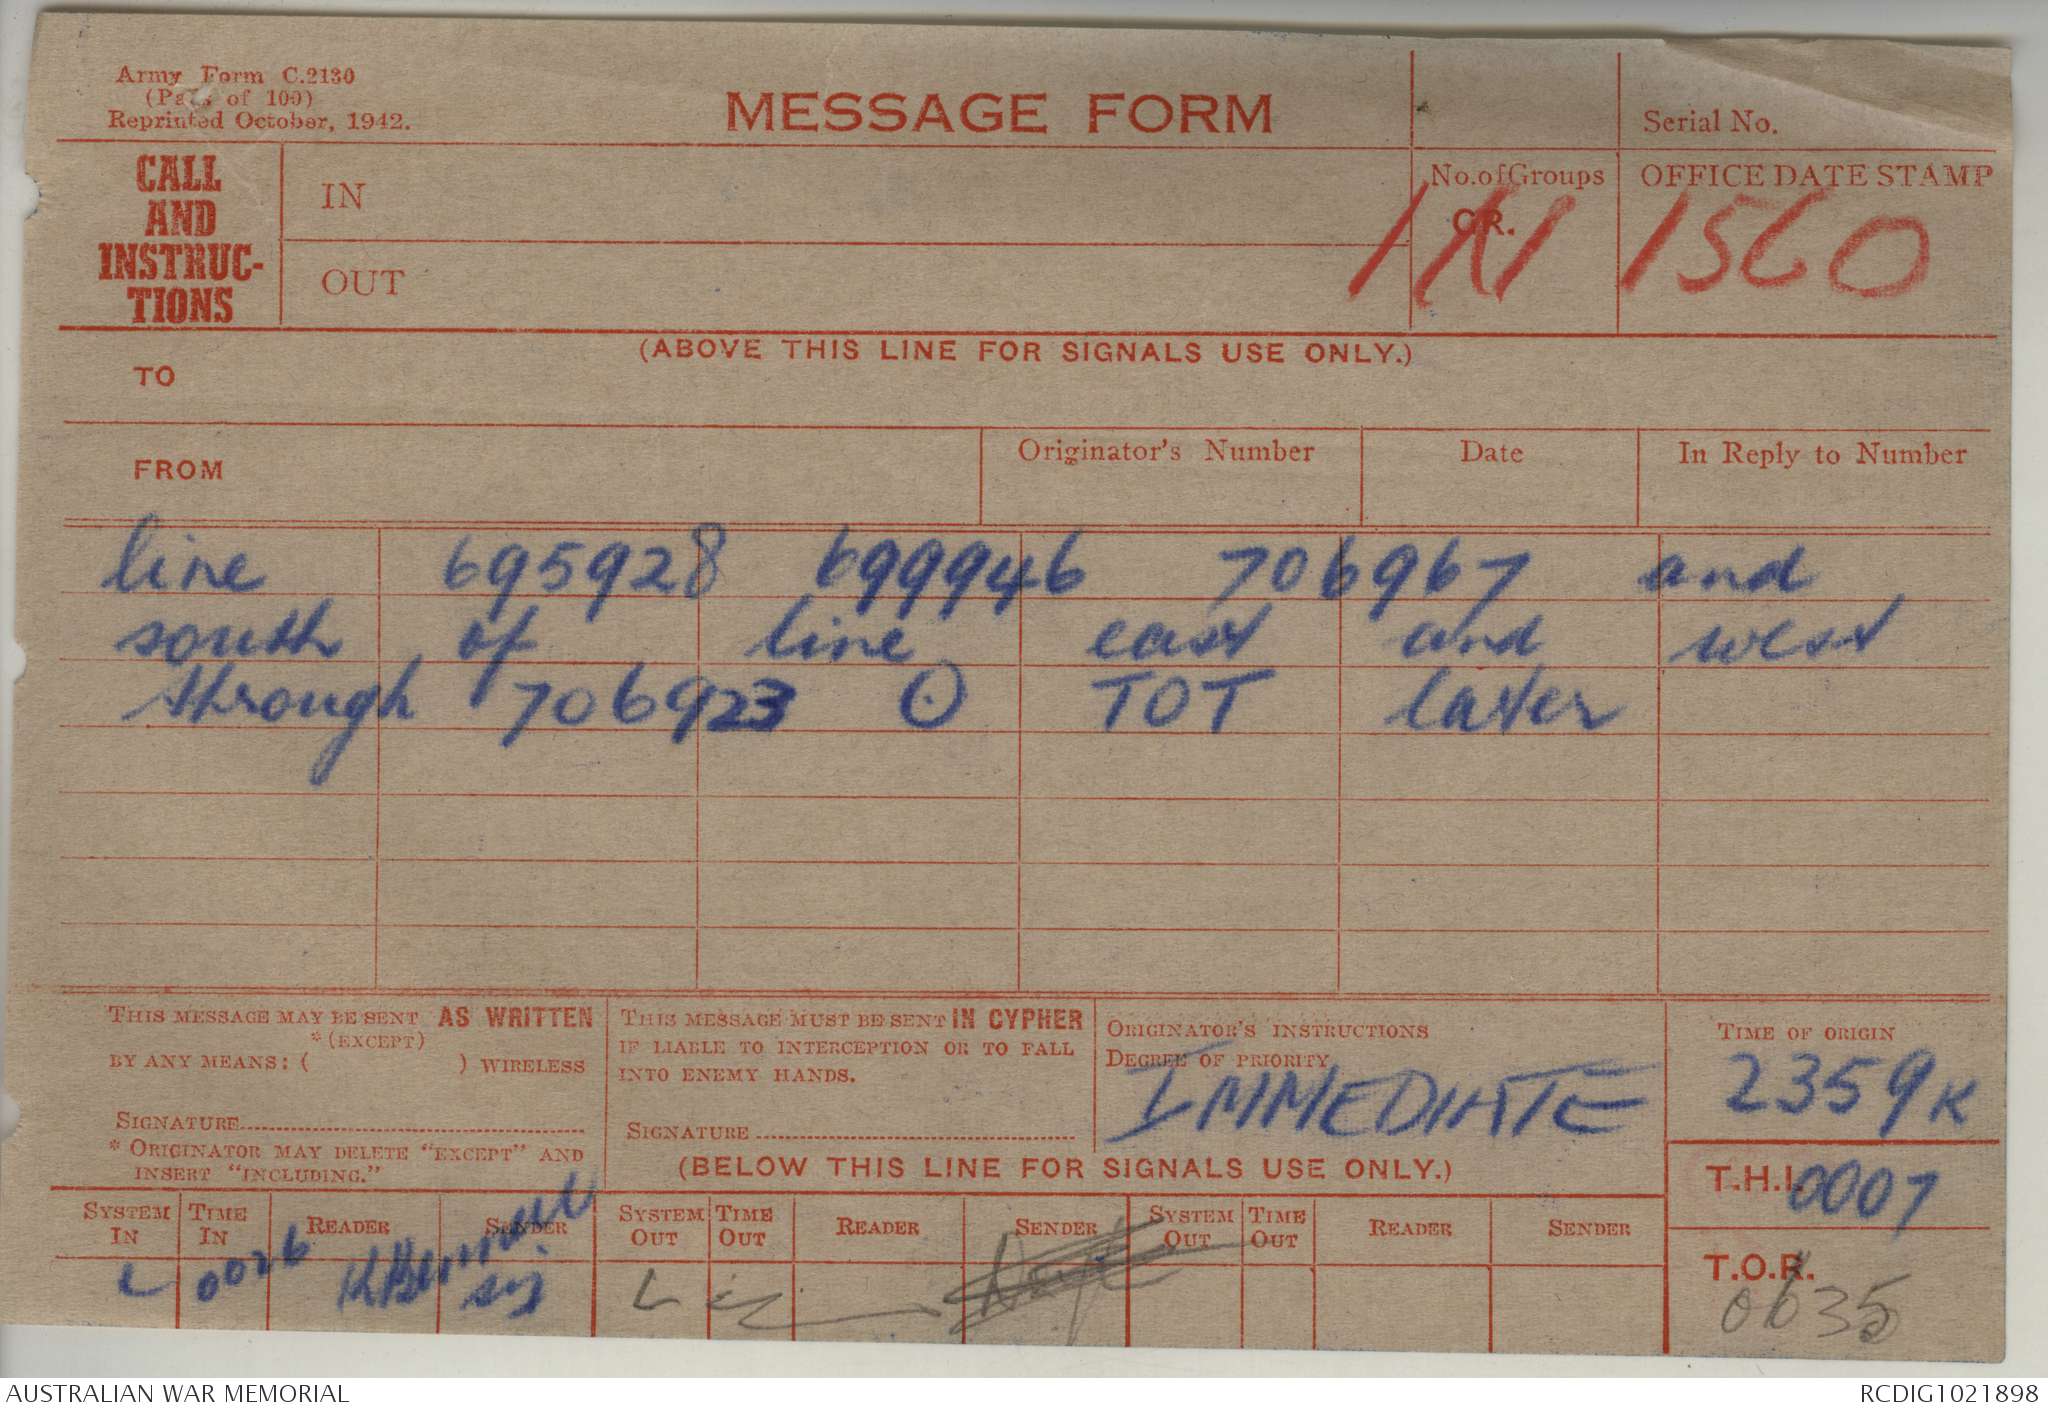 Army Form C.2130
(Pads of 100)
Reprinted October, 1942.
MESSAGE FORM
Serial No.
CALL
AND
INSTRUC-
TIONS
IN
OUT
No. of Groups
GR.
OFFICE DATE STAMP
1560
(ABOVE THIS LINE FOR SIGNALS USE ONLY.)
TO
FROM
Originator's Number
Date
In Reply to Number
line 695928 699946 706967 and
south of line east and west
through 706923 ⊙ TOT later
THIS MESSAGE MAY BE SENT AS WRITTEN
*(EXCEPT)
BY ANY MEANS: ( ) WIRELESS
SIGNATURE
* ORIGINATOR MAY DELETE "EXCEPT" AND
INSERT "INCLUDING."
THIS MESSAGE MUST BE SENT IN CYPHER
IF LIABLE TO INTERCEPTION OR TO FALL
INTO ENEMY HANDS.
SIGNATURE
ORIGINATOR'S INSTRUCTIONS
DEGREE OF PRIORITY
IMMEDIATE
TIME OF ORIGIN
2359K
(BELOW THIS LINE FOR SIGNALS USE ONLY.)
T.H.I. 0007
T.O.R.
0635
SYSTEM IN
TIME IN
READER
SENDER
SYSTEM OUT
TIME OUT
READER
SENDER
SYSTEM OUT
TIME OUT
READER
SENDER
L 0026
sig
L
AUSTRALIAN WAR MEMORIAL
RCDIG1021898